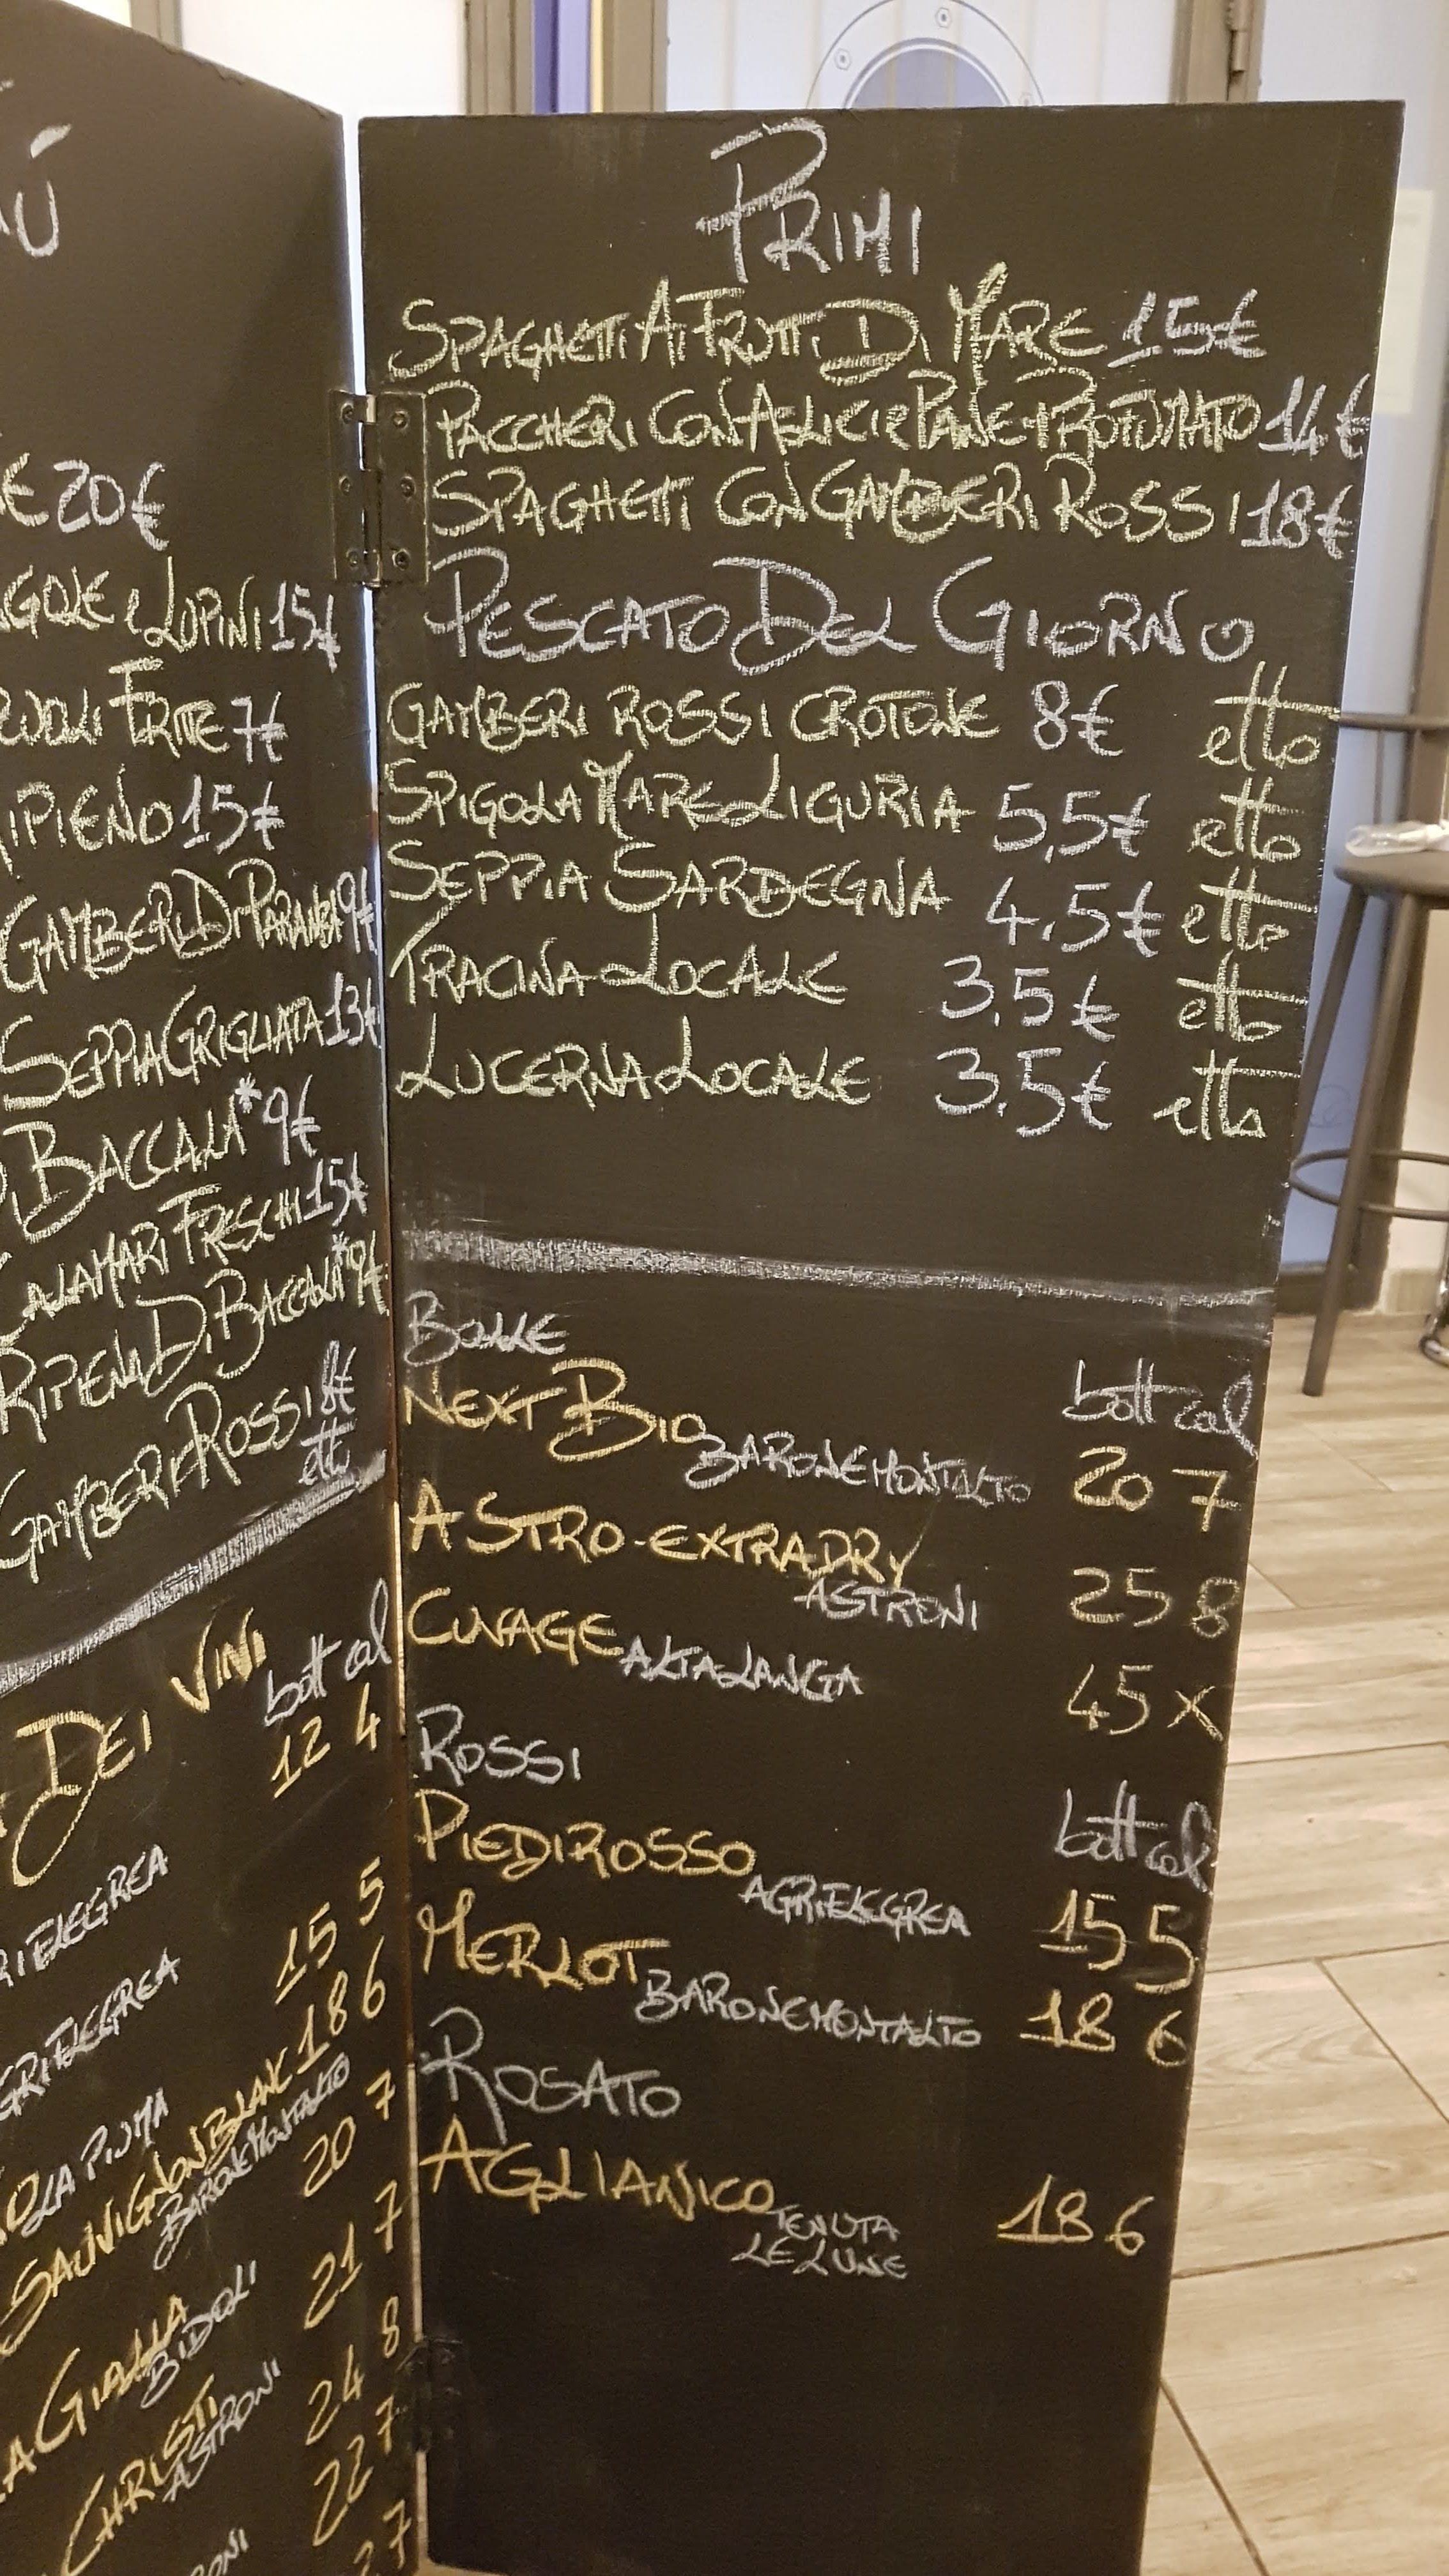 Ú
E 20€
GOLE e LUPINI 15€
FRITTE 7€
RIPIENO 15€
GAMBERI Di PARANZA 9€
SEPPIA GRIGLIATA 13€
BACCALÀ* 9€
CALAMARI FRESCHI 15€
RIPIENA Di BACCALÀ* 9€
GAMBERI ROSSI 8€
etto
DEI VINI
bott cal
12 4
RI FLEGREA
15 5
GRI FLEGREA
18 6
LA PIUMA
SAUVIGNON BLANC
BARONE MONTALTO
20 7
GIALLA
BIDOLI
21 7
CHRISTI
ASTRONI
24 8
22 7
RONI
7
PRIMI
SPAGHETTI Ai FRUTTI Di MARE 15€
PACCHERI CON ALICI e PANE PROFUMATO 14€
SPAGHETTI CON GAMBERI ROSSI 18€
PESCATO DEL GIORNO
GAMBERI ROSSI CROTONE 8€ etto
SPIGOLA MARE LIGURIA 5,5€ etto
SEPPIA SARDEGNA 4,5€ etto
TRACINA LOCALE 3,5€ etto
LUCERNA LOCALE 3,5€ etto
BOLLE
bott cal
NEXT BIO BARONE MONTALTO 20 7
ASTRO-EXTRADRY
ASTRONI 25 8
CUVAGE ALTA LANGA 45 X
ROSSI
bott cal
PIEDIROSSO
AGRI FLEGREA 15 5
MERLOT BARONE MONTALTO 18 6
ROSATO
AGLIANICO TENUTA 18 6
LE LUNE